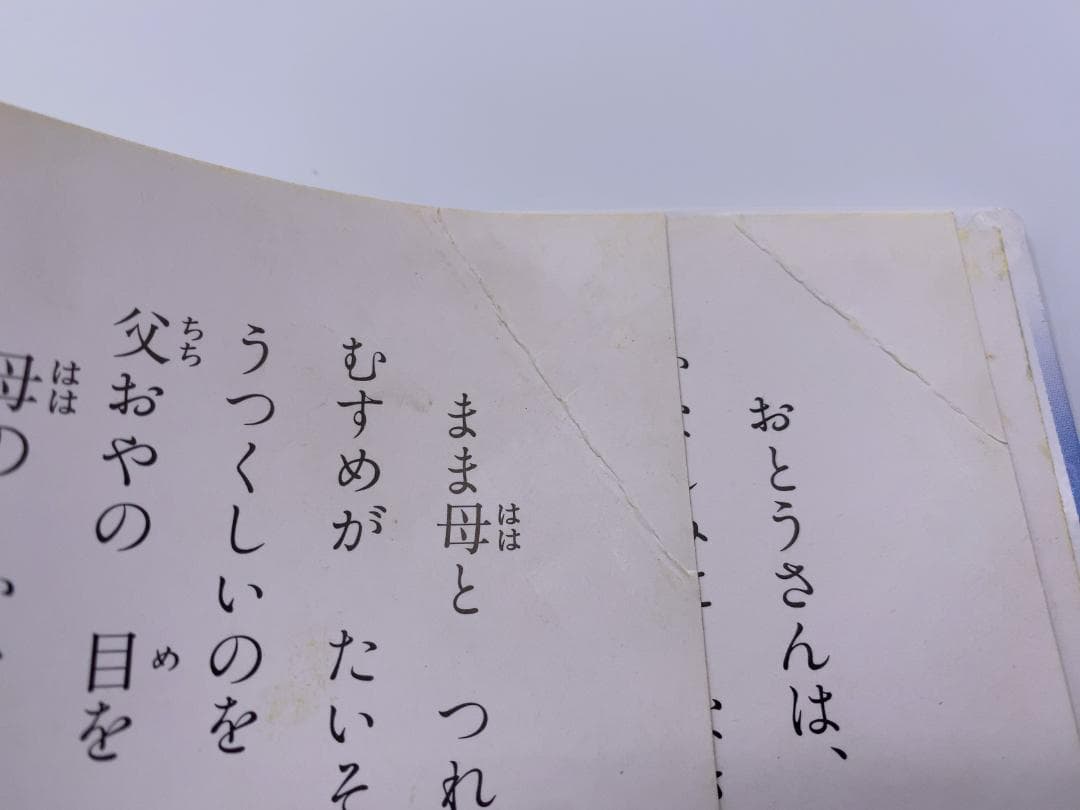 おとうさんは、
まま母と　つれ
むすめが　たいそ
うつくしいのを
父おやの　目を
母の
はは
ちち
め
はは